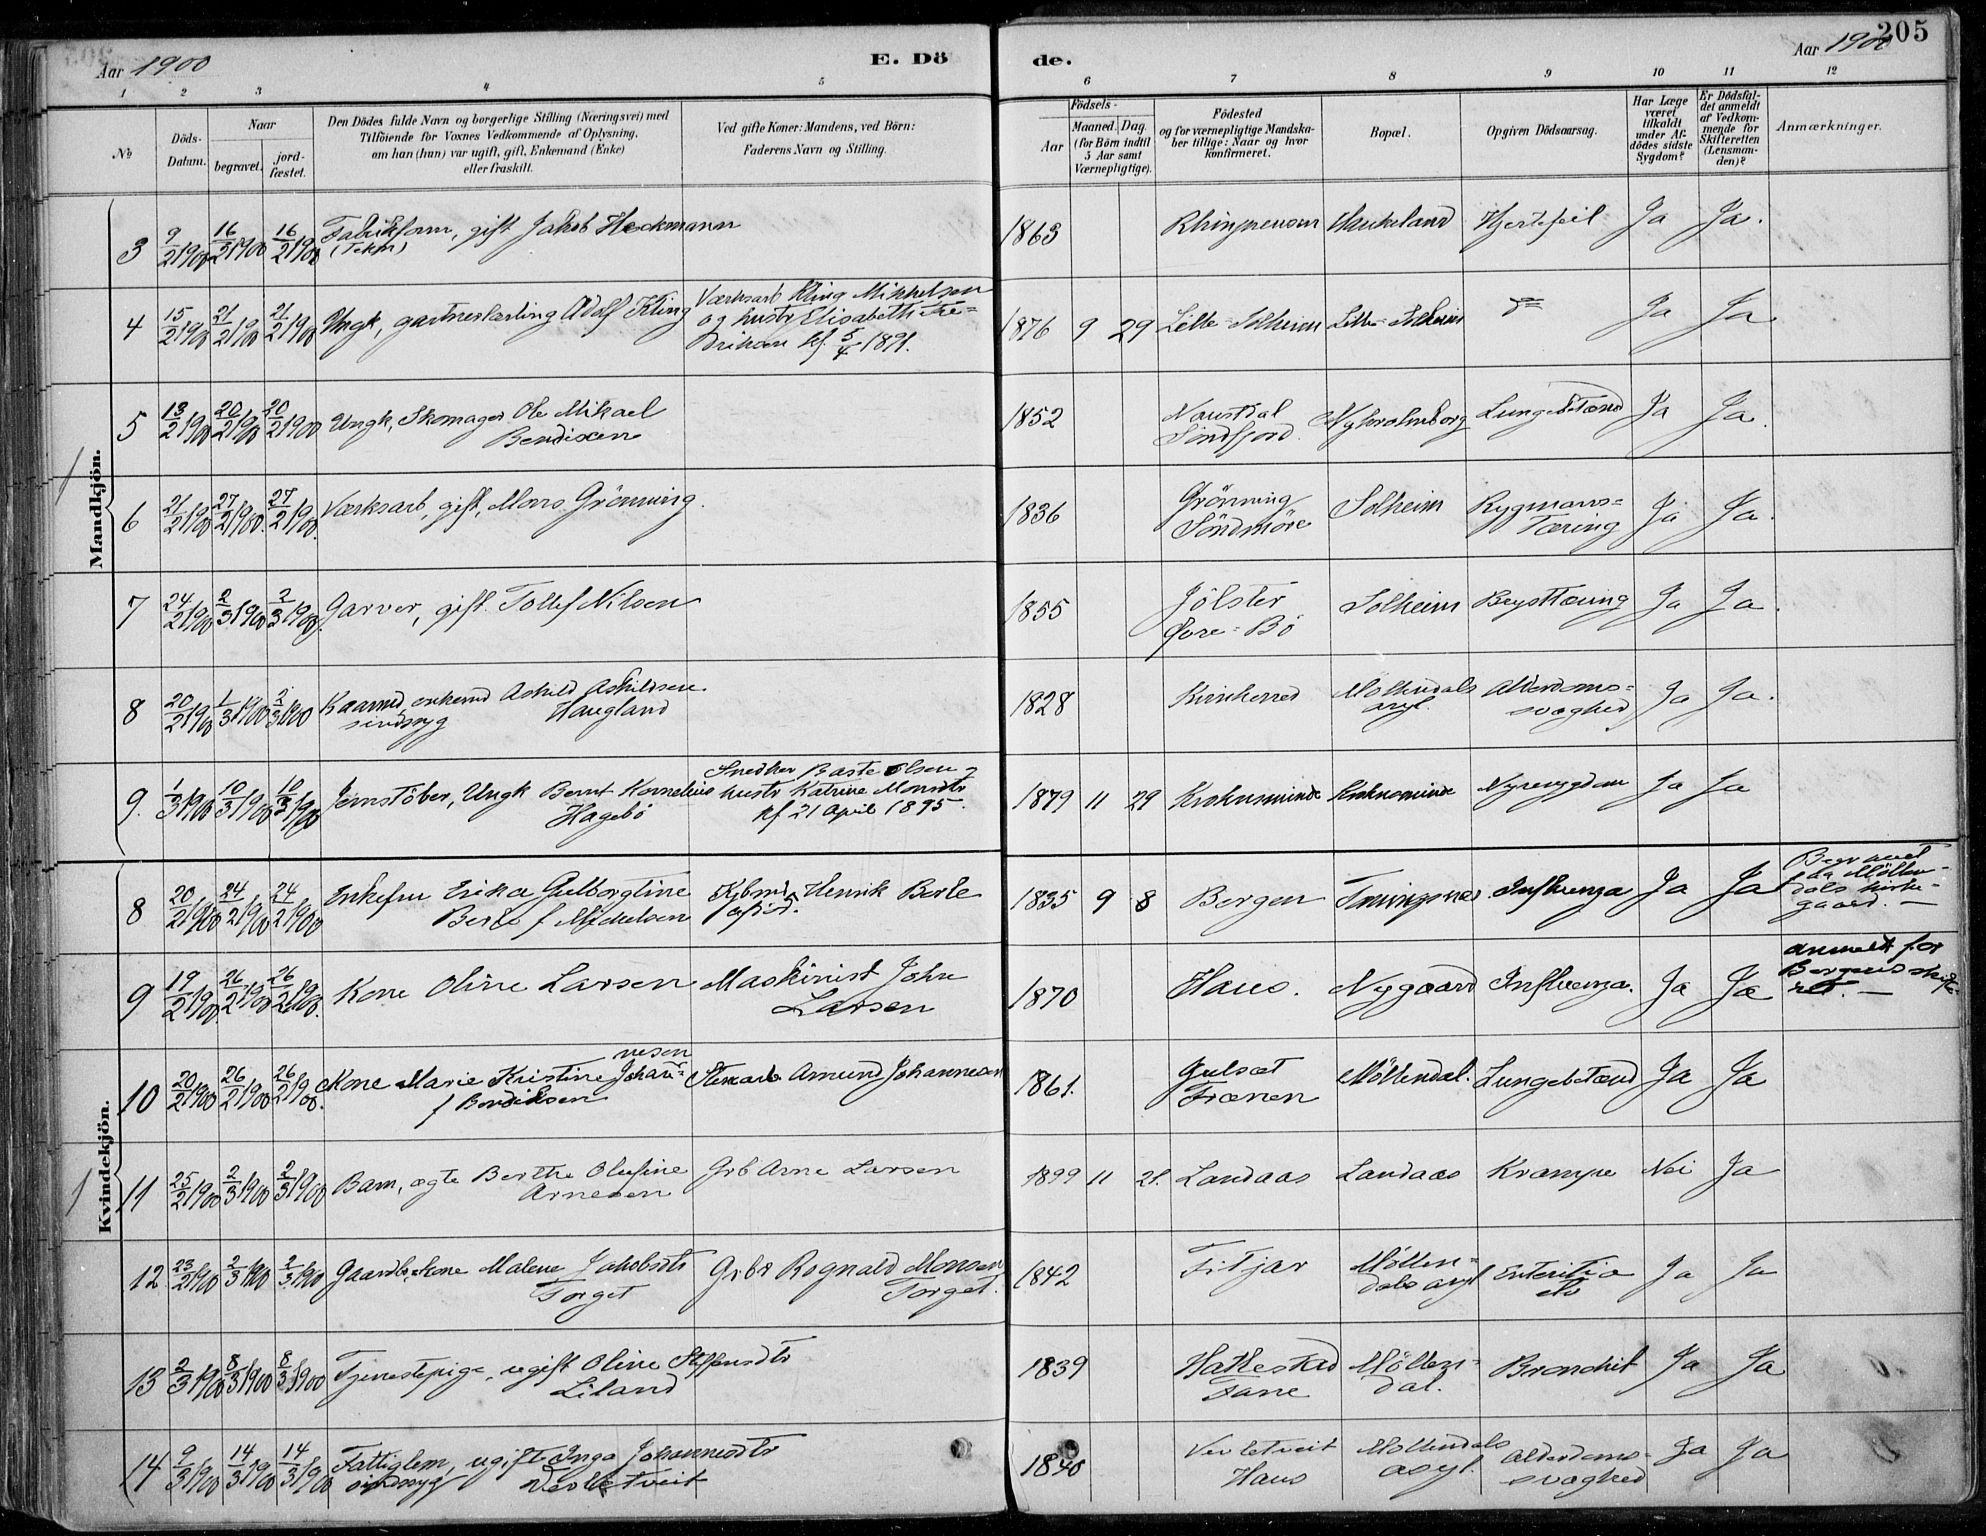 205
Aar 1900
E. Dö
de.
Aar 1900
1 2 3 4 5 6 7 8 9 10 11 12
№
Döds-Datum.
Naar
begravet.
jord-fæstet.
Den Dödes fulde Navn og borgerlige Stilling (Næringsvei) med
Tilföiende for Voxnes Vedkommende af Oplysning,
om han (hun) var ugift, gift, Enkemand (Enke)
eller fraskilt.
Ved gifte Koner: Mandens, ved Börn:
Faderens Navn og Stilling.
Födsels-
Aar
Maaned. Dag.
(for Börn indtil
5 Aar samt
Værnepligtige).
Födested
og for værnepligtige Mandska-
ber tillige: Naar og hvor
konfirmeret.
Bopæl.
Opgiven Dödsaarsag.
Har Læge
været
tilkaldt
under Af-
dödes sidste
Sygdom?
Er Dödsfal-
det anmeldt
af Vedkom-
mende for
Skifteretten
(Lensman-
den)?
Anmærkninger.
Mandkjön.
3 9/2 1900 16/2 1900 16/2 1900 Fabrikform, gift Jakob Heckmann 1863 Haukeland Hjertefeil Ja Ja.
4 15/2 1900 21/2 1900 21/2 1900 Ungk, gartnerlærling Adolf Kling
Værksarb Kling Mikkelsen
og hustr Elisabeth Fre-
drikson kf. 5/4 1891.
1876 9 29 Lille-Solheim Lille-Solheim Ja Ja
5 13/2 1900 20/2 1900 20/2 1900 Ungk, Skomager Ole Mikael
Bendixen
1852 Naustdal
Söndfjord. Lungebetænd Ja Ja.
6 21/2 1900 27/2 1900. 27/2 1900. Værksarb, gift, Mons Grönning.
1836 Grönning
Söndmöre Solheim Rygmarvs=
Tæring Ja Ja.
7 24/2 1900 2/3 1900 2/3 1900. Garver, gift. Tollef Nilsen
1855 Jölster
Övre=Bö Solheim Brysttæring Ja Ja.
8 20/2 1900 1/3 1900 2/3 1900 enkemd Askild Askildsen
sindssyg Haugland
1828 Möllendals
asyl. Alderdoms=
svaghed Ja Ja.
9. 1/3 1900 10/3 1900 10/3 1900 Jernstöber, Ungk Bernt Kornelius
Hagebö
Snedker Baste Olsen
hustr Katrine Monsdtr
kf 21 April 1895
1879 11 29 Kroknesminde Kroknesminde Nyresygdom Ja Ja
Kvindekjön.
8 20/2 1900 24/2 1900 24/2 1900 Enkefru Erika Gulborgtine
Berle f Mickelsen
Henrik Berle
1835 9 8 Bergen Influenza Ja Ja
Begravet
paa Möllen-
dals kirke-
gaard. —
9 19/2 1900. 26/2 1900 26/2 1900. Kone Oline Larsen
Maskinist John
Larsen
1870 Haus. Nygaard Influenza. Ja Ja
anmeldt for
Bergens skifte-
ret. —
10 20/2 1900 26/2 1900 26/2 1900. Kone Marie Kristine Johan-
nesen
f Bendiksen
Stenarb Amund Johannesen
1861. Julsæt
Frænen Möllendal. Lungebetænd Ja Ja
11 25/2 1900 2/3 1900 2/3 1900 Barn, ægte Berthe Olufine
Arnesen
Grb Arne Larsen
1899 11 21. Landaas Landaas Krampe Nei Ja
12 23/2 1900 2/3 1900 2/3 1900 Gaardbr.kone Malene Jakobsdtr
Torget
Grbr Rognald Monsen
Torget.
1842 Fitjar Möllen=
dals asyl Enteritis
Ja Ja
13 2/3 1900 8/3 1900 8/3 1900 Tjenestepige, ugift Oline Steffensdtr
Liland
1839 Hattestad
Fane Möllen=
dal. Bronchit Ja Ja
14 9/3 1900 14/3 1900 14/3 1900 Fattiglem, ugift Inga Johannesdtr
sindssyg Vevletveit
1840 Vevletveit
Haus Möllendals
asyl. Alderdoms-
svaghed Ja Ja